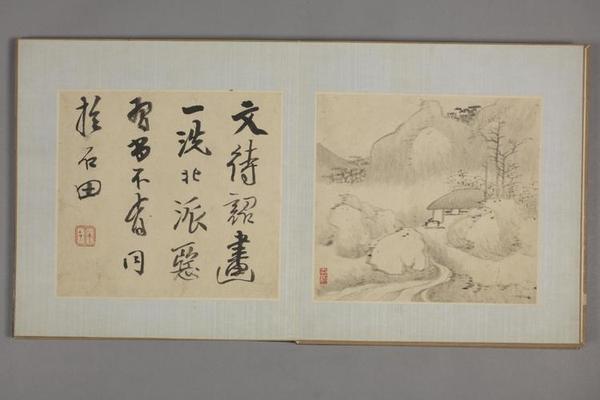 文待詔畫
一洗北派惡
習不肯同
於石田